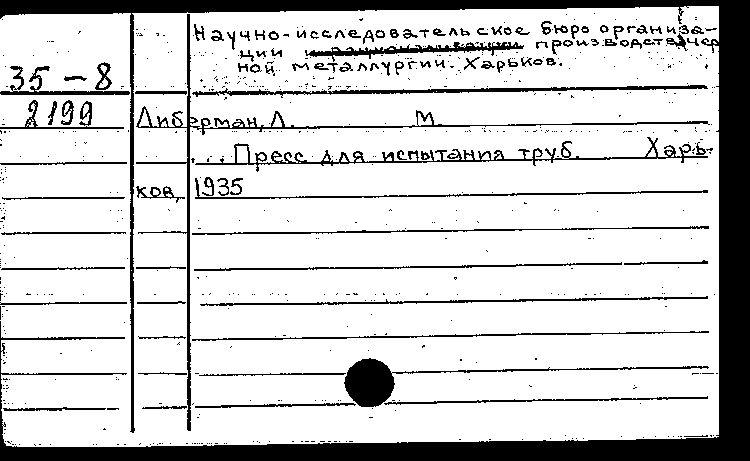 Научно-исследовательское бюро организа-
ции и рационализации производства чер
ной металлургии. Харьков.
35 – 8
2199
Либерман, Л. М.
... Пресс для испытания труб. Харь-
ков, 1935